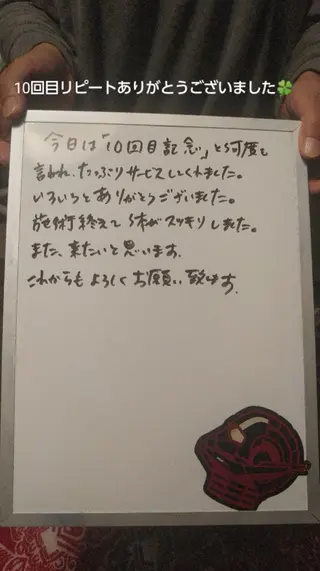 10回目リピートありがとうございました🍀
今日は「10回目記念」と何度も
言われ、たっぷりサービスしてくれました。
いろいろとありがとうございました。
施術終えて体がスッキリしました。
また、来たいと思います。
これからもよろしくお願い致します。